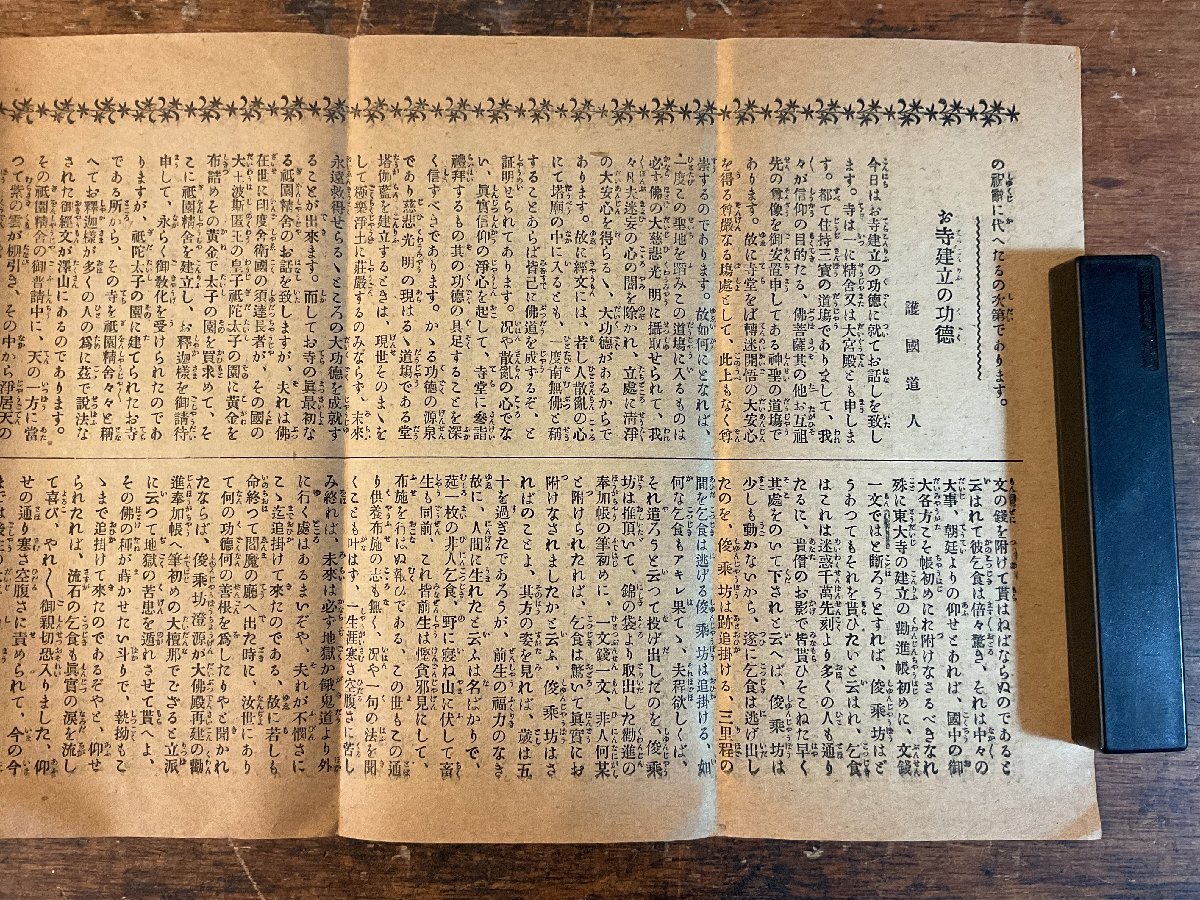 の祝辭に代へたるの次第であります。
お寺建立の功德
護國道人
今日はお寺建立の功德に就てお話しを致し
ます。寺は一に精舍又は大宮殿とも申しま
す。都て住持三寳の道塲でありまして、我
々が信仰の目的たる、佛菩薩其の他お互祖
先の尊像を御安置申してある神聖の道塲で
あります。故に寺堂をば轉迷開悟の大安心
を得る尊嚴なる塲處として、此上もなく尊
崇するのであります。故如何にとなれば、
一度この聖地を踏みこの道塲に入るものは
必す佛の大慈悲光明に攝取せられて、我
々凡夫迷妄の心の闇を除かれ、立處に淸淨
の大安心を得らるゝ、大功德があるからで
あります。故に經文には、若し人散亂の心
にて塔廟の中に入るとも、一度南無佛と稱
することあらば皆已に佛道を成ずるぞ、と
証明せられてあります。况や散亂の心でな
い、眞實信仰の淨心を起して、寺堂に參詣
禮拜するもの其の功德の具足することを深
く信ずべきであります。かゝる功德の源泉
であり慈悲光明の現はるゝ道塲である堂
塔伽藍を建立するときは、現世そのまゝを
して極樂淨土に莊嚴するのみならず、未來
永遠救得せらるゝところの大功德を成就す
ることが出來ます。而してお寺の眞最初な
る祇園精舍のお話を致しますが、夫れは佛
在世に印度舍衞國の須達長者が、その國の
大王波斯匿王の皇子祇陀太子の園に黃金を
布詰めその黃金で太子の園を買求めて、そ
こに祇園精舍を建立し、お釋迦樣を御請待
申して、永らく御敎化を受けられたのであ
りますが、祇陀太子の園に建てられたお寺
である所から、その寺を祇園精舍々々と稱
へてお釋迦樣が多くの人の爲に茲で說法な
された御經文が澤山にあるのであります。
その祇園精舍の御普請中に、天の一方に當
つて紫の雲が棚引き、その中から淨居天の
文の錢を附けて貰はねばならぬのであると
云はれて彼乞食は倍々驚き、それは中々の
大事、朝廷よりの仰せとあれば、國中の御
大名各方こそ帳初めにお附けなさるべきなれ
殊に東大寺の建立の勸進帳初めに、文錢
一文ではと斷ろうとすれば、俊乘坊はど
うあつてもそれを貰ひたいと云はれ、乞食
はこれは迷惑千萬先刻より多くの人も通り
たるに、貴僧のお影で皆貰ひそこねた早く
其處をのいて下されと云へば、俊乘坊は
少しも動かないから、遂に乞食は逃げ出し
たのを、俊乘坊は跡追掛ける、三里程の
間を乞食は逃げる俊乘坊は追掛ける、如
何な乞食もアキレ果てゝ、夫程欲しくば、
それ遣ろうと云つて投げ出したのを、俊乘
坊は推頂いて、錦の袋より取出した勸進の
奉加帳の筆初めに、一文錢一文、非人何某
と附けられたれば、乞食は驚いて眞實にお
附けなされましたかと云ふ、俊乘坊はさ
ればのことよ、其方の姿を見れば、歲は五
十を過ぎたであろうが、前生の福力のなき
故に、人間に生れたと云ふは名ばかりで、
菰一枚の非人乞食、野に寢ね山に伏して畜
生も同前、これ皆前生は慳貪邪見にして、
布施を行はぬ報ひである、この世もこの通
り供養布施の志も無く、况や一句の法を聞
くことも叶はす、一生涯寒さ空腹さに苦し
み終れば、未來は必す地獄か餓鬼道より外
に行く處はあるまいぞや、夫れが不憫さに
こゝ迄追掛けて來たのである、故に若しも
命終つて閻魔の廳へ出た時に、汝世にあり
て何の功德何の善根を爲したりやと聞かれ
たならば、俊乘坊澄源が大佛殿再建の勸
進奉加帳、筆初めの大檀那でござると立派
に云つて地獄の苦患を遁れさせて貰へよ、
その佛の種が蒔かせたい斗りで、執拗もこ
ゝまで追掛けて來たのであるぞやと、仰せ
られたれば、流石の乞食も眞實の淚を流し
て喜び、やれ〳〵御親切恐入りました、仰
せの通り寒さ空腹さに責められて、今の今